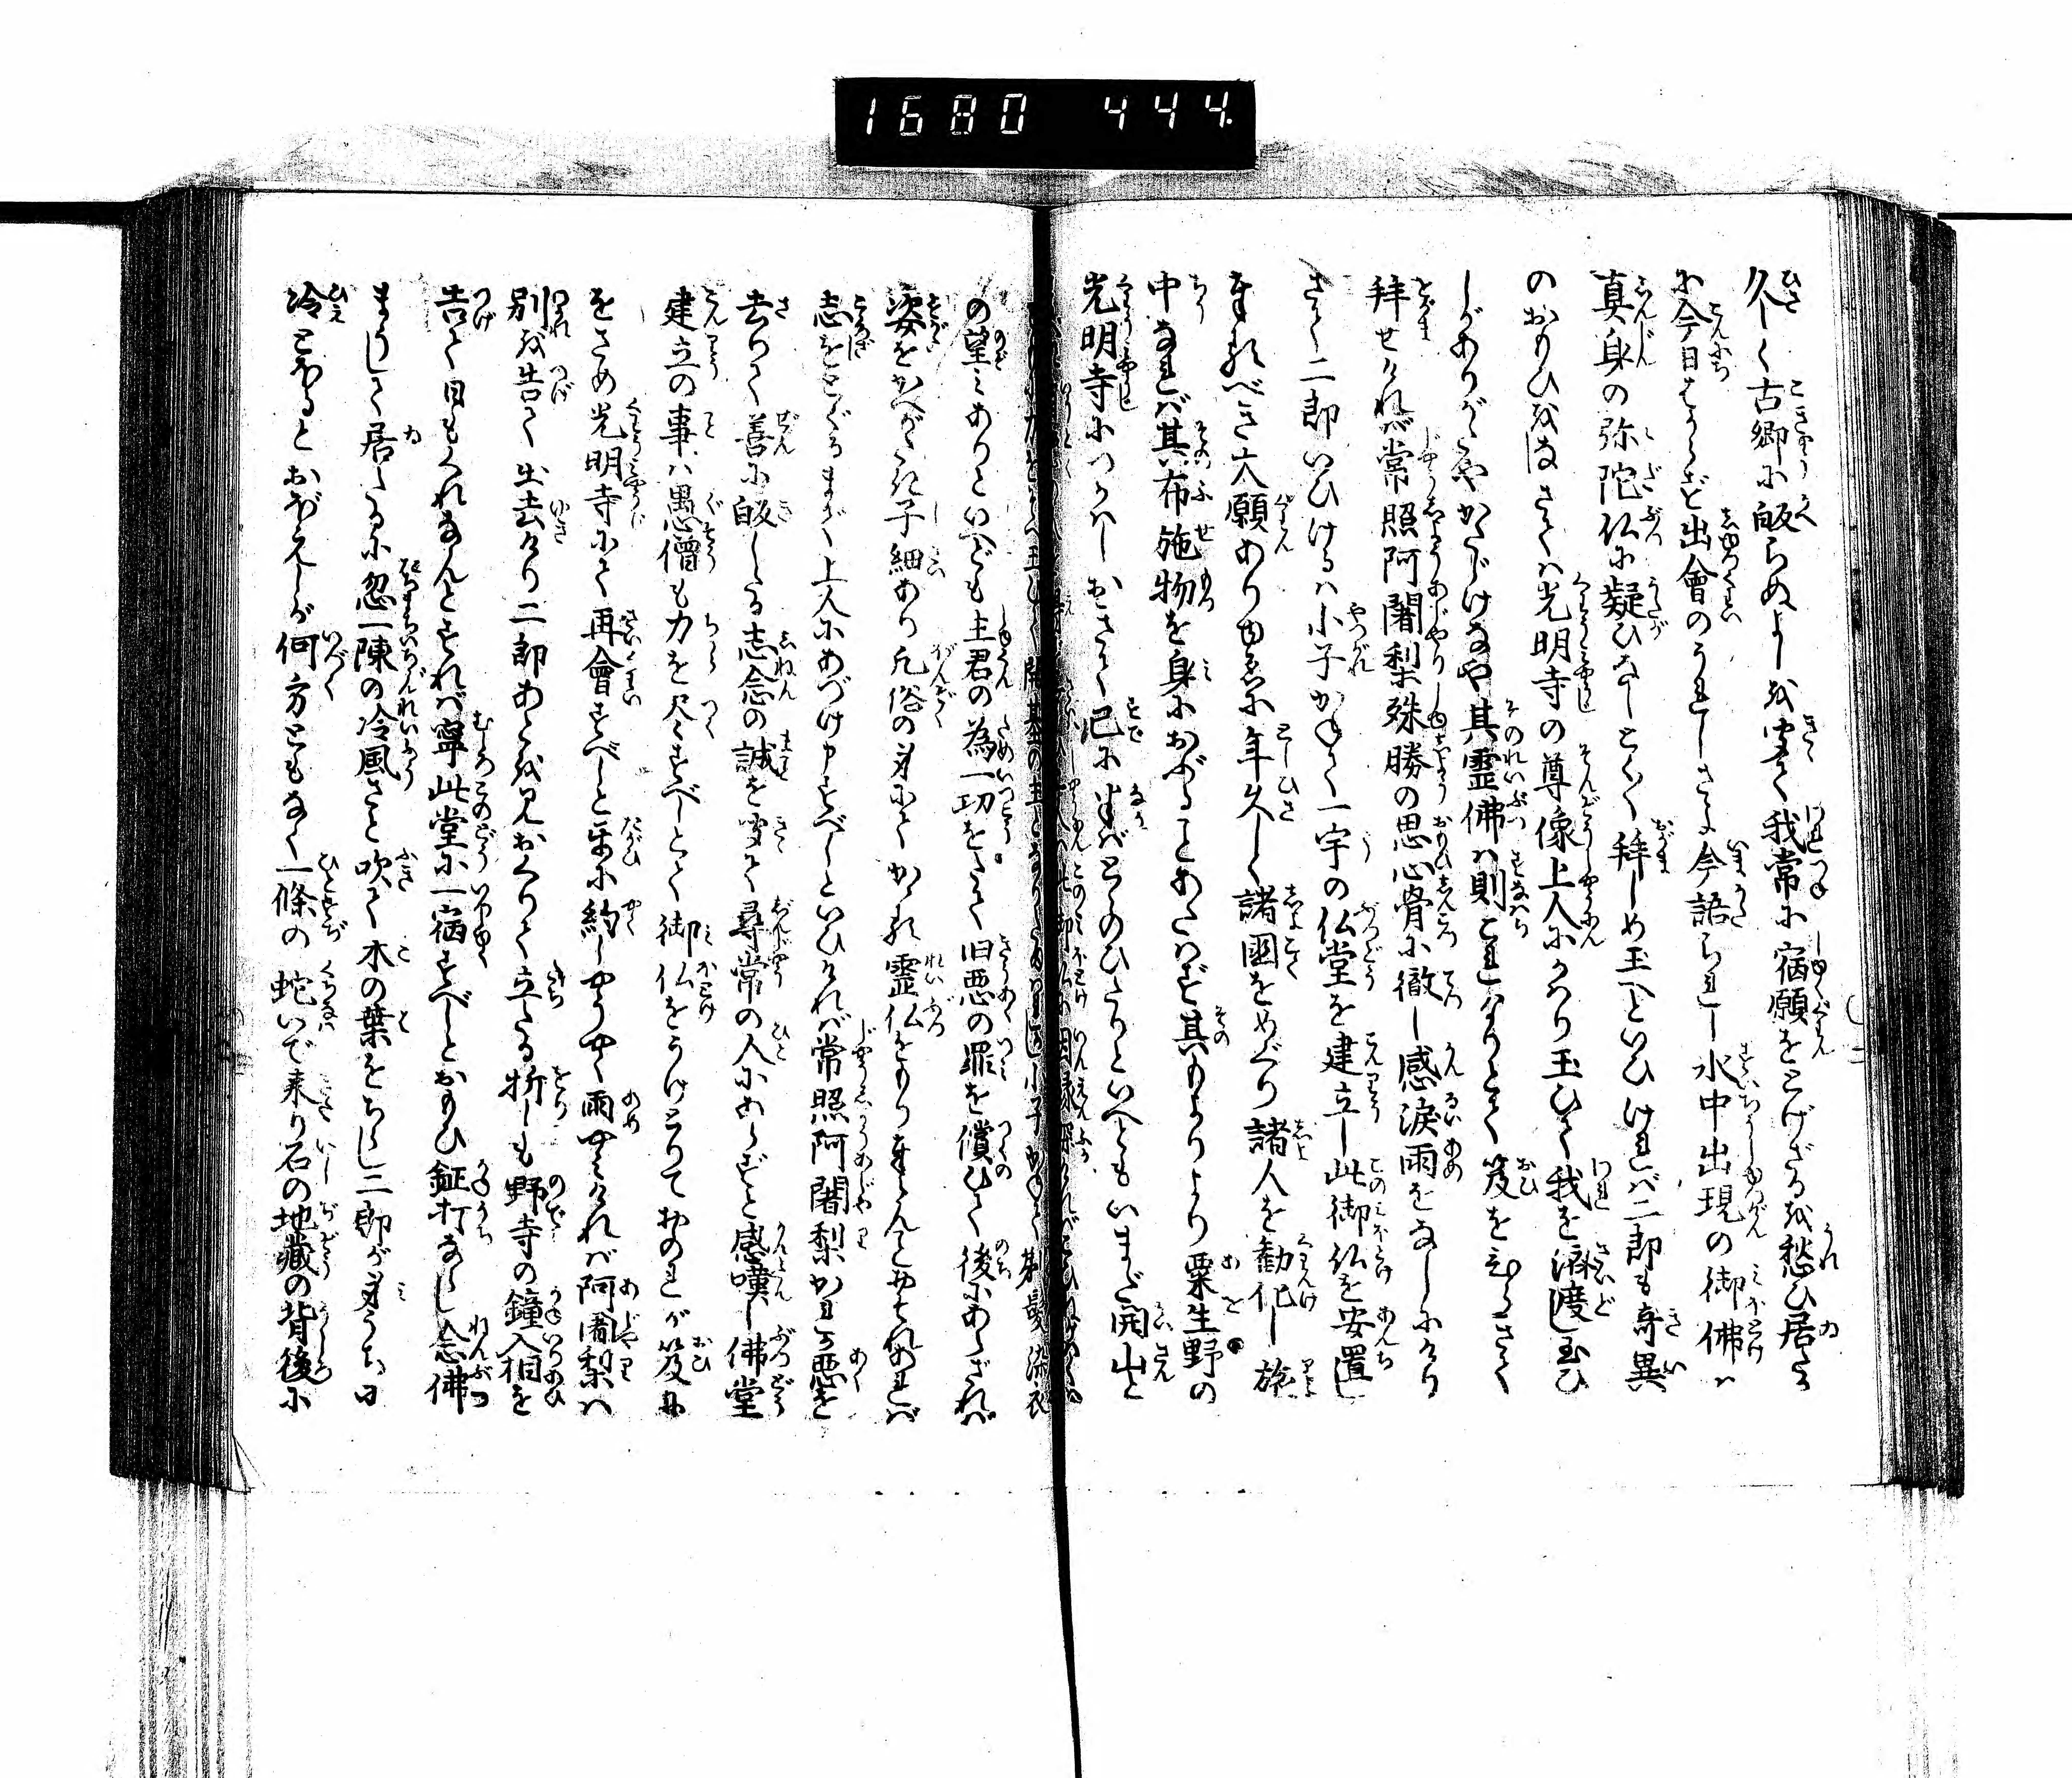 1680 444.
久しく古郷に皈らぬよしを聞て我常に宿願をとげざるを愁ひ居たる
に今日はからず出會のうれしさよ今語られし水中出現の御佛は
真身の弥陀仏に疑ひなしとく〳〵拝しめ玉へといひければ二郎も奇異
のおもひをなしさては光明寺の尊像上人にかはり玉ひて我を済度し玉ひ
しがありがたやかたじけなや其霊佛は則これなりとて笈をひらきて
拝せければ常照阿闍梨殊勝の思心骨に徹し感涙雨をなしにけり
さて二郎いひけるは小子かねて一宇の仏堂を建立し此御仏を安置し
奉るべき大願ありゆゑに年久しく諸國をめぐり諸人を勧化し旅
中なれば其布施物を身におぶることあたはず其もよりより粟生野の
光明寺につかはしおきて已に半ばとゝのひたりといへどもいまだ開山と
の望みありといへども主君の為一功をたて旧悪の罪を償ひて後にあらざれば
姿をかへがたき子細あり凡俗の身にてかゝる霊仏をまもり奉らんもおそれあれば
志をとぐるまで上人にあづけ申すべしといひければ常照阿闍梨かれが悪を
去りて善に皈したる志念の誠を聞て尋常の人にあらずと感嘆し佛堂
建立の事は愚僧も力を尽すべしとて御仏をうけとりておのれが笈に
をさめ光明寺にて再會すべしと互に約しやうやく雨やみければ阿闍梨は
別を告て出去けり二郎あとを見おくりて立たる折しも野寺の鐘入相を
告て日もくれなんとすれば寧此堂に一宿すべしとおもひ鉦打ならし念佛
まうして居たるに忽一陳の冷風さと吹て木の葉をちらし二郎が身うち日
冷とほるとおぼえしが何方ともなく一條の蛇いで来り石の地藏の背後に